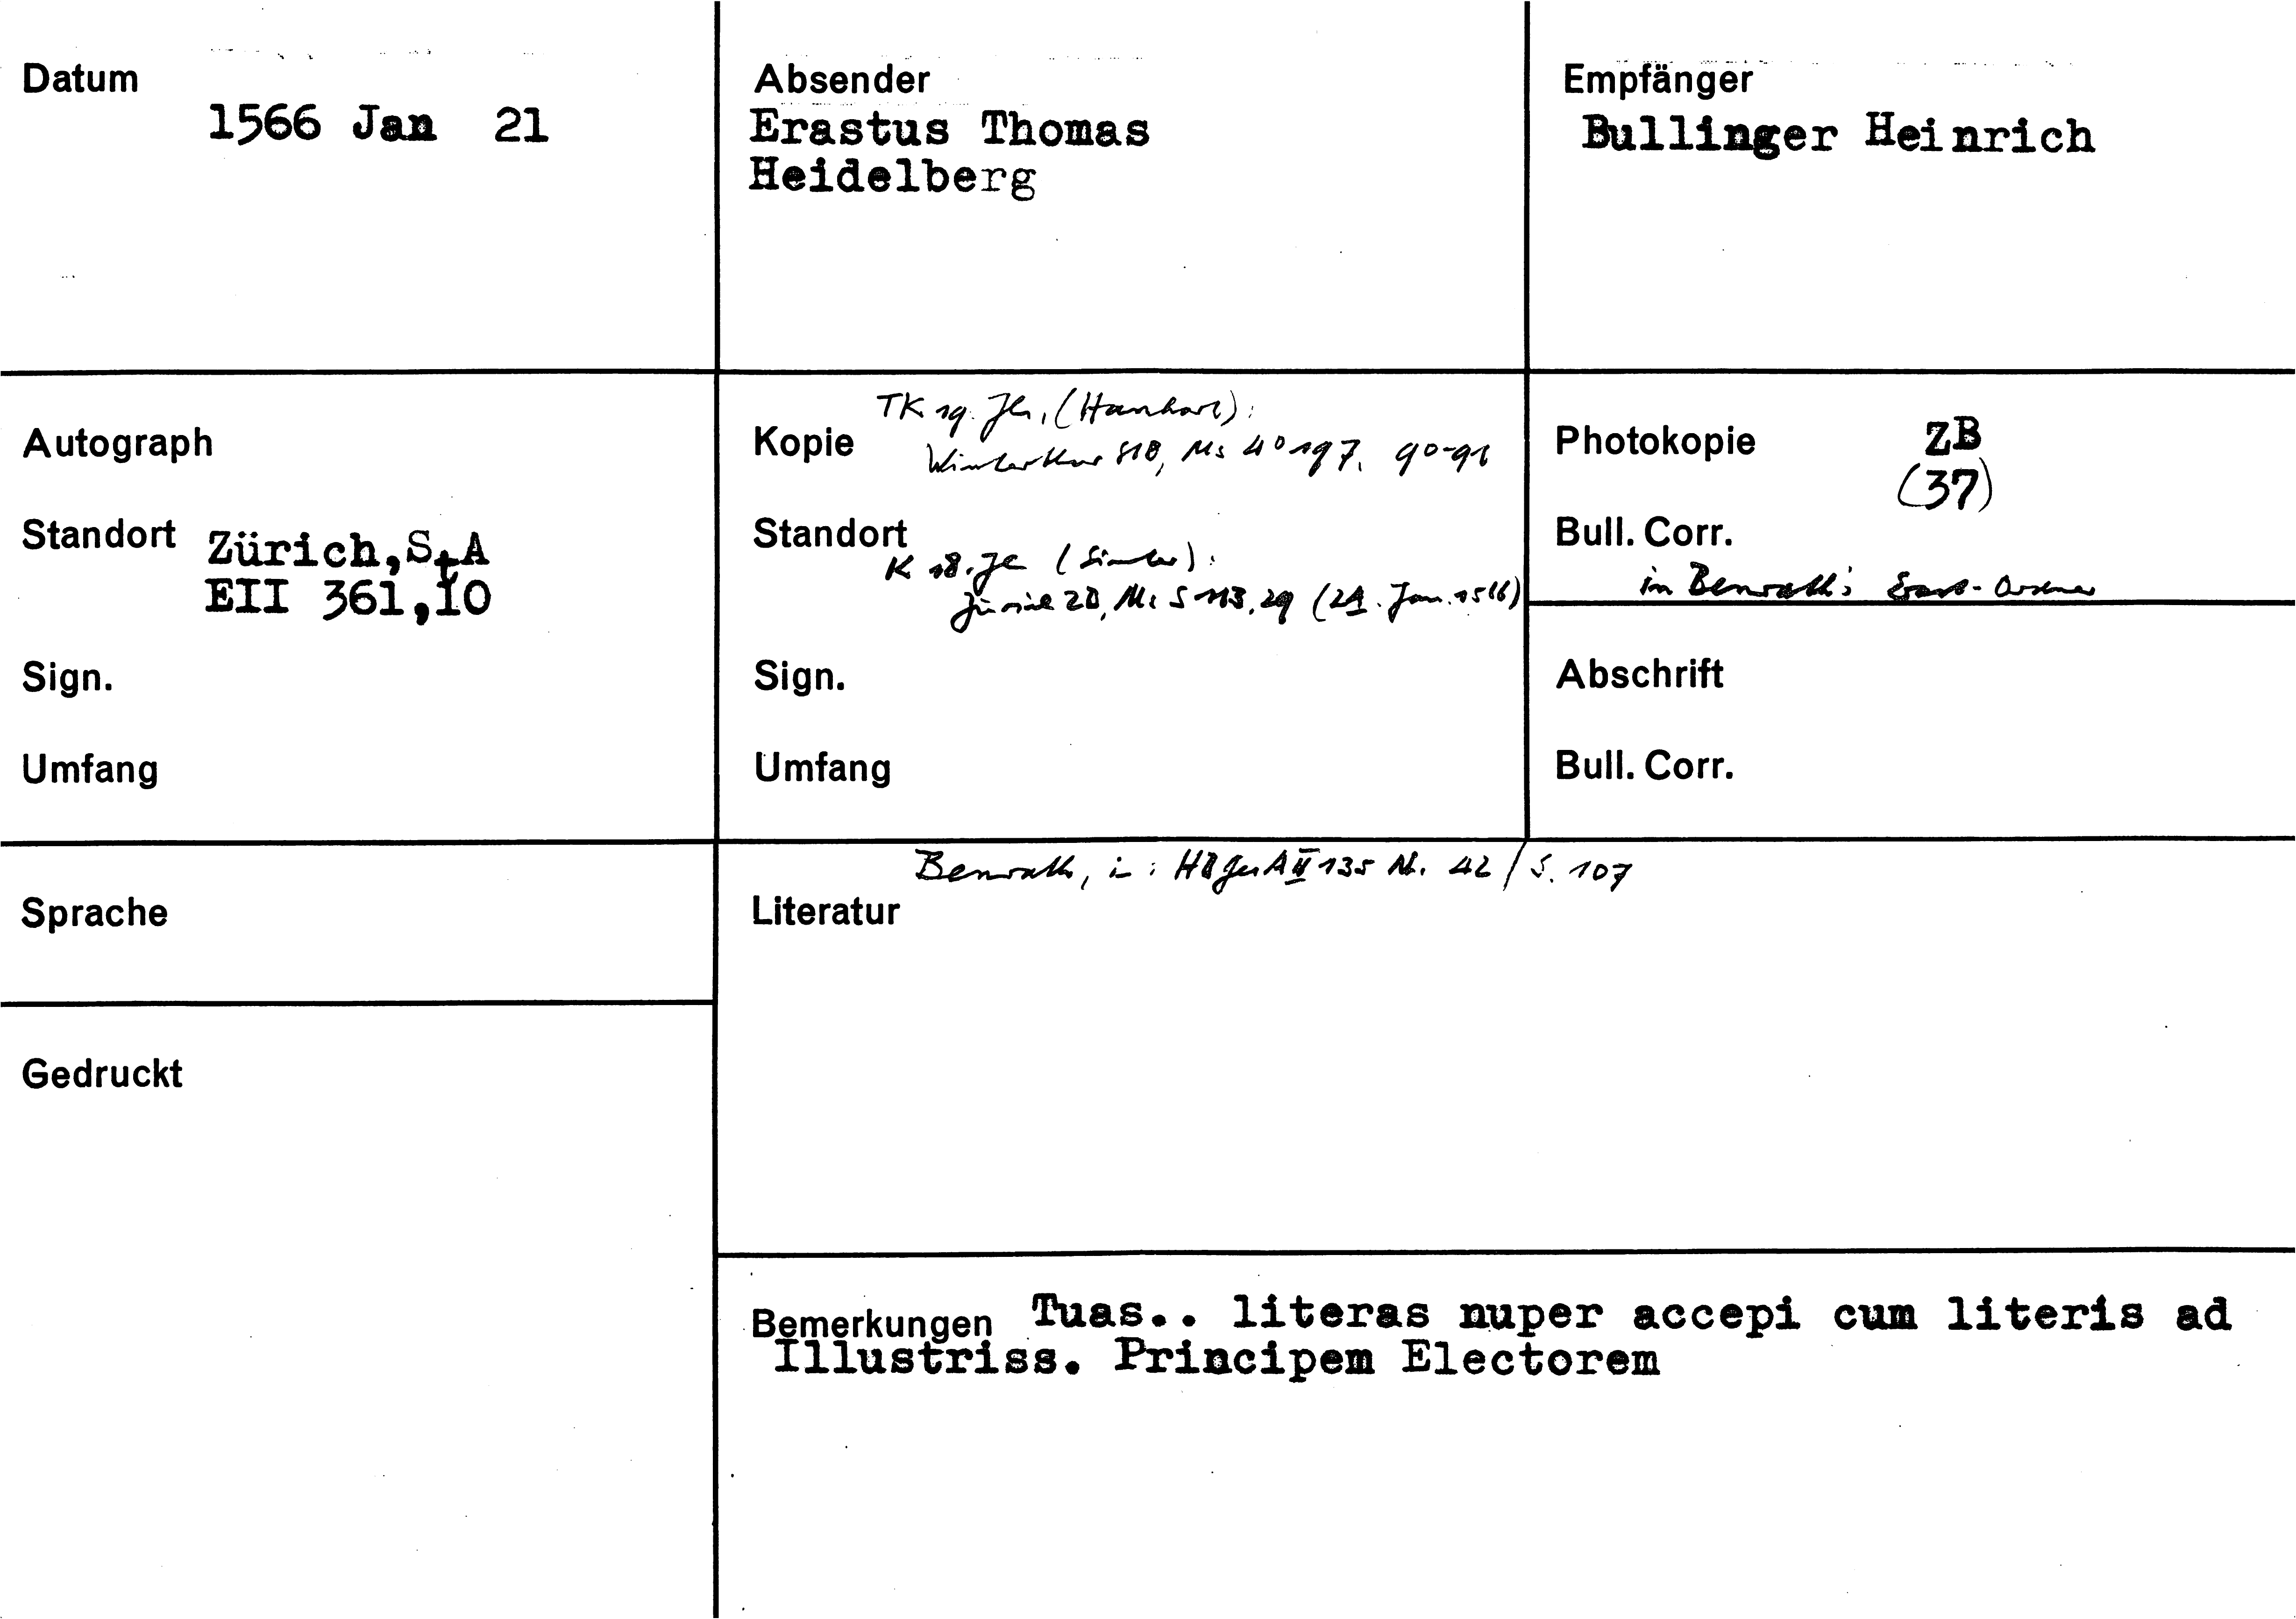 Datum
1566 Jan 21
Absender
Erastus Thomas
Heidelberg
Empfänger
Bullinger Heinrich
Autograph
Standort Zürich, StA
EII 361,10
Sign.
Umfang
TK 19. Jh. (Hanhart):
Kopie Winterthur StB, Ms 4° 197, 90-91
Standort
K 18. Jh (Simler):
Zürich ZB, Ms S 113, 29 (21. Jan. 1566)
Sign.
Umfang
Photokopie ZB
(37)
Bull. Corr.
in Benrath's Erast-Ordner
Abschrift
Bull. Corr.
Sprache
Gedruckt
Benrath, in: 135 Nr. 42 / S. 107
Literatur
Bemerkungen Tuas.. literas nuper accepi cum literis ad
Illustriss. Principem Electorem